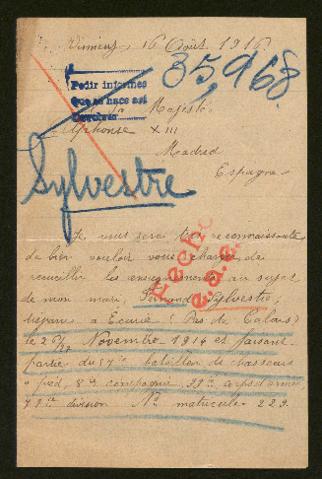 Vimieux, 16 Août 1916
35,968.
Pedir informes
que se hace asi
Majesté
Alphonse XIII
Madrid
Espagne
Sylvestre
Je vous serai très reconnaissante
de bien vouloir vous charger de
recueillir les renseignements au sujet
de mon mari, Fernand Sylvestre,
disparu à Écurie (Pas de Calais)
le 27 Novembre 1914 et faisant
partie du 57e bataillon de chasseurs
à pied, 8e compagnie, corps d'armée
division No matricule 229.
Hecho
e.a.e.